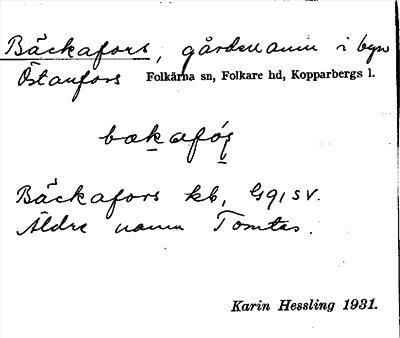 Bäckafors, gårdsnamn i byn
Östanfors Folkärna sn, Folkare hd, Kopparbergs l.
bækafós̩
Bäckafors kb, G 91 SV.
Äldre namn Tomtas.
Karin Hessling 1931.